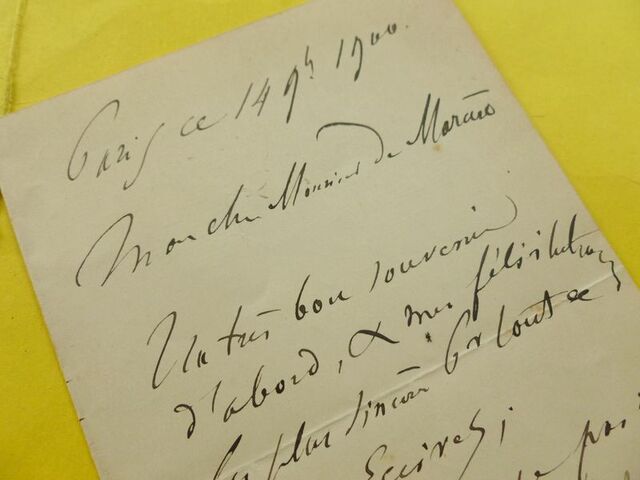 Paris ce 14 9h 1900.
Mon cher Monsieur de
Un très bon souvenir
d'abord, & mes félicitations
les plus sincères pr tout ce